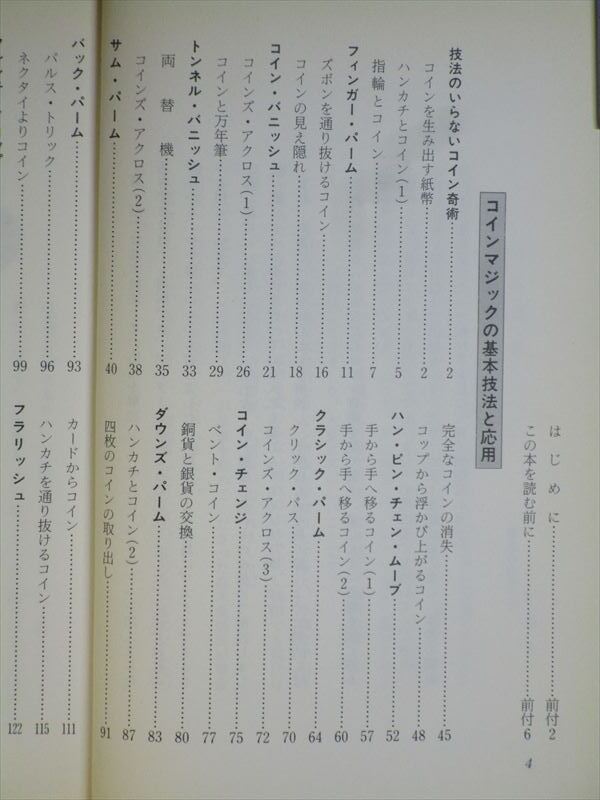 はじめに……前付2
この本を読む前に……前付6
コインマジックの基本技法と応用
技法のいらないコイン奇術……2
コインを生み出す紙幣……2
ハンカチとコイン(1)……5
指輪とコイン……7
フィンガー・パーム……11
ズボンを通り抜けるコイン……16
コインの見え隠れ……18
コイン・バニッシュ……21
コインズ・アクロス(1)……26
コインと万年筆……29
トンネル・バニッシュ……33
両替機……35
コインズ・アクロス(2)……38
サム・パーム……40
完全なコインの消失……45
コップから浮かび上がるコイン……48
ハン・ピン・チェン・ムーブ……52
手から手へ移るコイン(1)……57
手から手へ移るコイン(2)……60
クラシック・パーム……64
クリック・パス……70
コインズ・アクロス(3)……72
コイン・チェンジ……75
ベント・コイン……77
銅貨と銀貨の交換……80
ダウンズ・パーム……83
ハンカチとコイン(2)……87
四枚のコインの取り出し……91
バック・パーム……93
パルス・トリック……96
ネクタイよりコイン……99
カードからコイン……111
ハンカチを通り抜けるコイン……115
フラリッシュ……122
4